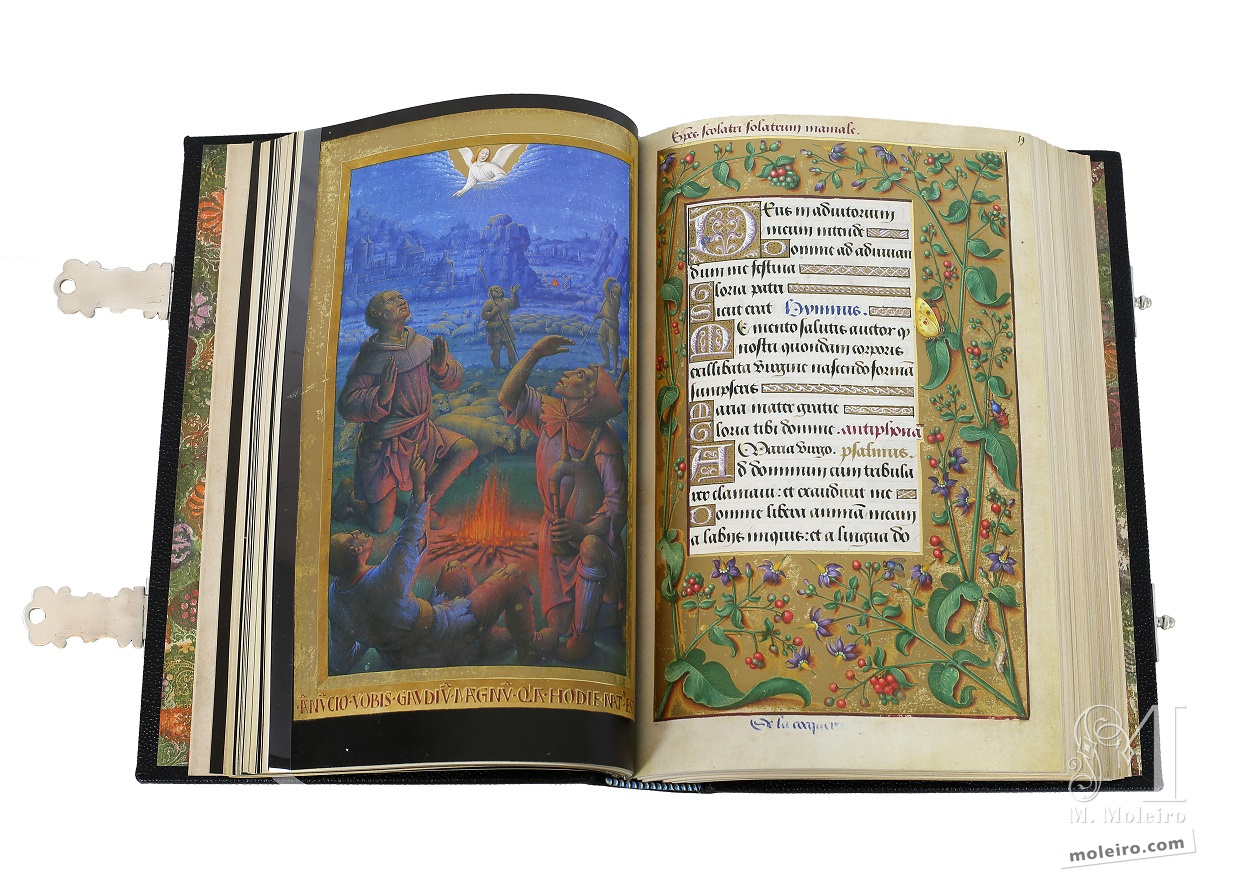 ANŪCIO·VOBIS·GAVDIV̄·MAGNV̄·Q'A·HODIE·NAT'·EST
Spēs scolatri solatrum maniale.
59
Deus in adiutorium
meum intende
Domine ad adiuuan
dum me festina
Gloria patri
Sicut erat Hymnus.
Memento salutis auctor q̄
nostri quondam corporis
ex illibata virgine nascendo formā
sumpseris
Maria mater gratie
Gloria tibi domine. antiphona
A Maria virgo. psalmus.
Ad dominum cum tribula
rer clamaui: et exaudiuit me
Domine libera animā meam
a labijs iniquis: et a lingua do
M
M. Moleiro
moleiro.com